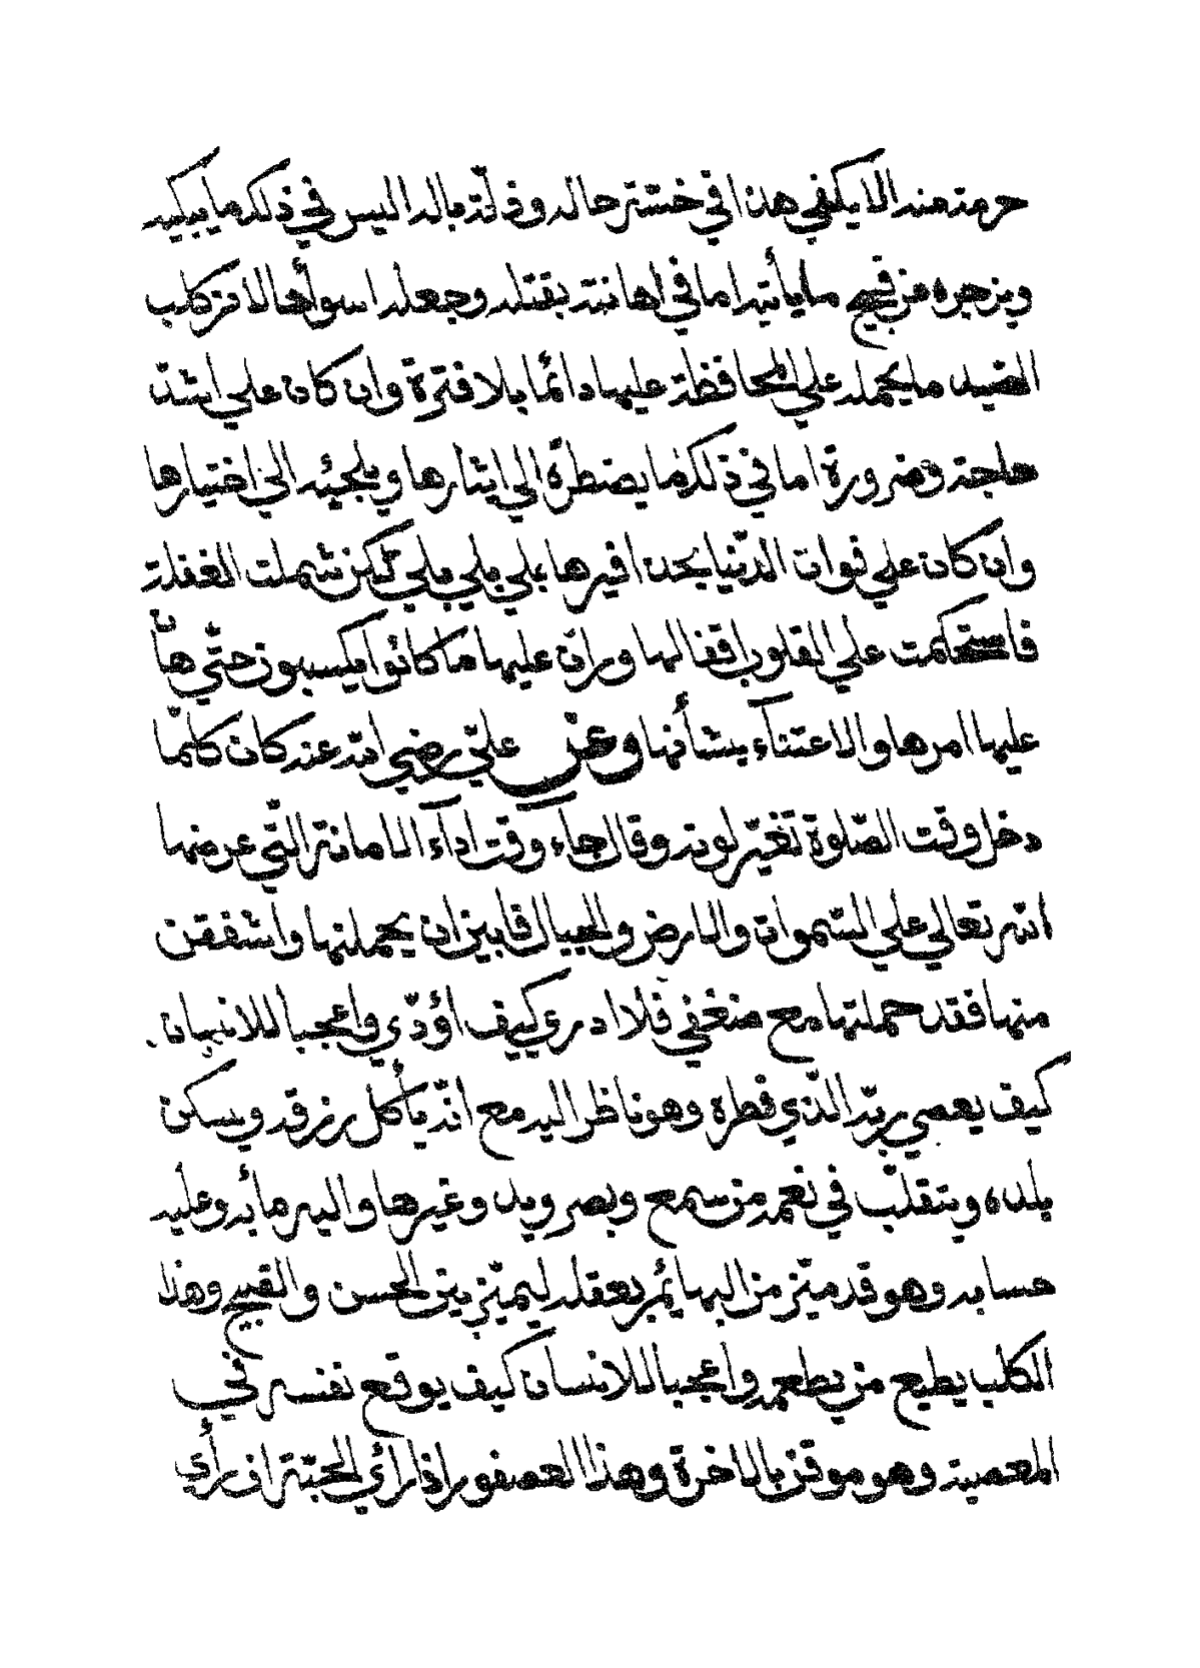 حرمة منه الا يكفي هذا في خسّة حاله وذلّة باله اليس في ذلك ما يبكيه
ويزجره عن قبيح ما يأتيه اما في اهانته بقتله وجعله اسوأ حالا من كلب
الصيد ما يحمله علي المحافظة عليها دائما بلا فترة وان كان علي اشدّ
حاجة وضرورة اما في ذلك ما يضطرّه الي ايثارها ويلجيئه الي اختيارها
وان كان علي فوات الدّنيا بحذافيرها بلي بلي بلي لكن شملت الغفلة
فاستحكمت علي القلوب اقفالها وران عليها ما كانوا يكسبون حتّي هان
عليها امرها والاعتنآء بشأنها وعن عليّ رضي الله عنه كان كلّما
دخل وقت الصّلوة تغيّر لونه وقال جآء وقت ادآء الامانة الّتي عرضها
الله تعالي علي السّموات والارض والجبال فابين ان يحملنها واشفقن
منها فقد حملتها مع ضعفي فلا ادري كيف اؤدّي واعجبا للانسان
كيف يعصي ربّه الّذي فطره وهو ناظر اليه مع انّه يأكل رزقه ويسكن
بلده ويتقلّب في نعمه من سمع وبصر ويد وغيرها واليه مأبه وعليه
حسابه وهو قد ميّز من البهايم بعقله ليميّز بين الحسن والقبيح وهذا
الكلب يطيع من يطعمه واعجبا للانسان كيف يوقع نفسه في
المعصية وهو موقن بالاخرة وهذا العصفور اذا رأي الحبّة ان رأي